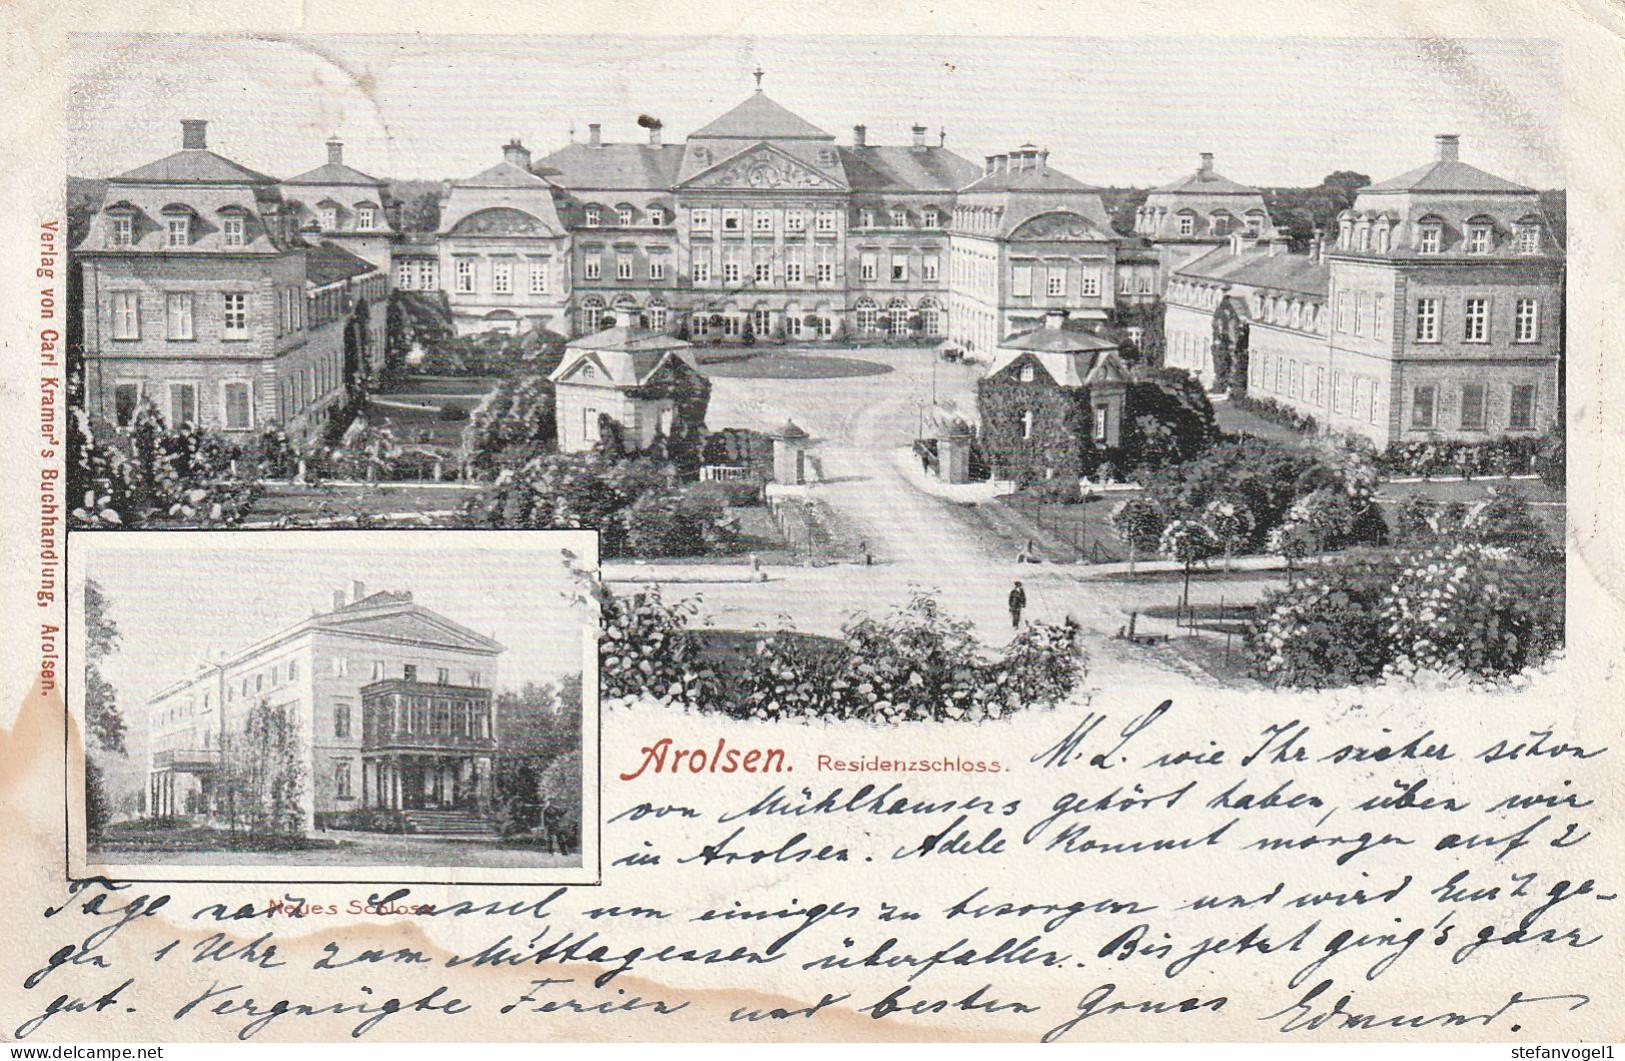 Verlag von Carl Kramer's Buchhandlung, Arolsen.
Arolsen. Residenzschloss.
Neues Schloss
M. L. wie Ihr sicher schon
von Mühlhausers gehört haben, üben wir
in Arolsen. Adele kommt morgen auf 2
Tage nach Cassel, um einiges zu besorgen und wird Euch ge-
gen 1 Uhr zum Mittagessen überfallen. Bis jetzt ging's ganz
gut. Vergnügte Ferien und besten Gruss Edmund.
delcampe.net
stefanvogel1